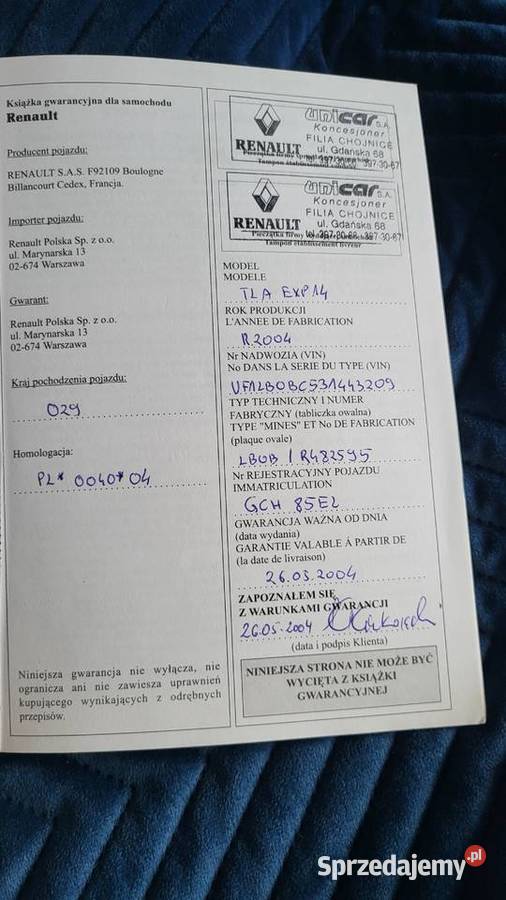 Książka gwarancyjna dla samochodu
Renault
Producent pojazdu:
RENAULT S.A.S. F92109 Boulogne
Billancourt Cedex, Francja.
Importer pojazdu:
Renault Polska Sp. z o.o.
ul. Marynarska 13
02-674 Warszawa
Gwarant:
Renault Polska Sp. z o.o.
ul. Marynarska 13
02-674 Warszawa
Kraj pochodzenia pojazdu:
029
Homologacja:
PL* 0040*04
Niniejsza gwarancja nie wyłącza, nie
ogranicza ani nie zawiesza uprawnień
kupującego wynikających z odrębnych
przepisów.
RENAULT
unicar S.A.
Koncesjoner
FILIA CHOJNICE
ul. Gdańska 68
Pieczątka firmy
RENAULT
unicar S.A.
Koncesjoner
FILIA CHOJNICE
ul. Gdańska 68
Pieczątka firmy
Tampon établissement livreur
MODEL
MODELE
TLA EXP14
ROK PRODUKCJI
L'ANNEE DE FABRICATION
R2004
Nr NADWOZIA (VIN)
No DANS LA SERIE DU TYPE (VIN)
VF1LB0BC531443209
TYP TECHNICZNY I NUMER
FABRYCZNY (tabliczka owalna)
TYPE "MINES" ET No DE FABRICATION
(plaque ovale)
LB0B / R482595
Nr REJESTRACYJNY POJAZDU
IMMATRICULATION
GCH 85EL
GWARANCJA WAŻNA OD DNIA
(data wydania)
GARANTIE VALABLE Á PARTIR DE
(la date de livraison)
26.05.2004
ZAPOZNAŁEM SIĘ
Z WARUNKAMI GWARANCJI
26.05.2004
(data i podpis Klienta)
NINIEJSZA STRONA NIE MOŻE BYĆ
WYCIĘTA Z KSIĄŻKI
GWARANCYJNEJ
Sprzedajemy.pl